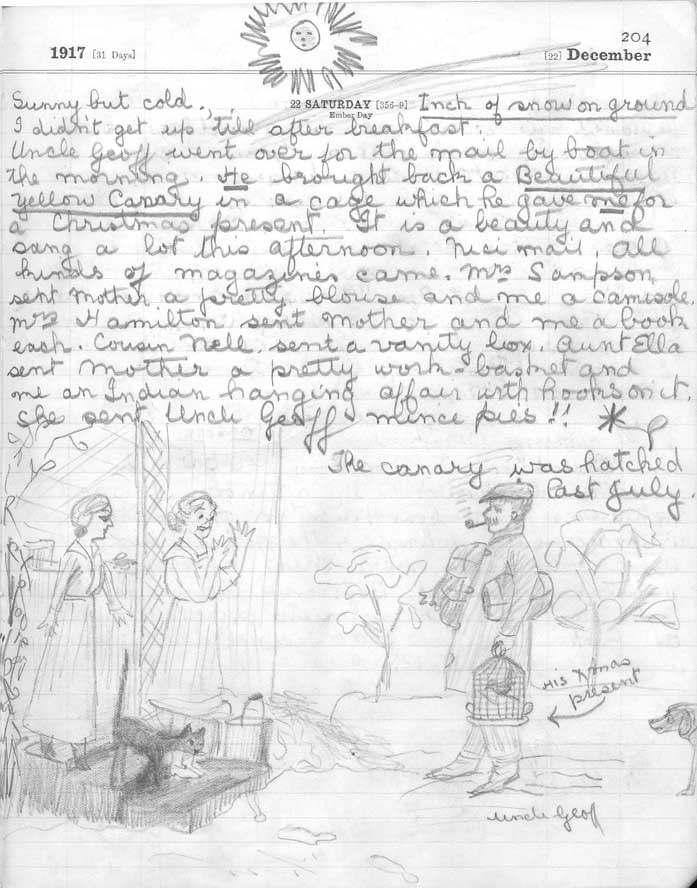 204
1917 [31 Days] [22] December
22 SATURDAY [356-9]
Ember Day
Sunny but cold. Inch of snow on ground
I didn't get up till after breakfast.
Uncle Geoff went over for the mail by boat in
the morning. He brought back a Beautiful
Yellow Canary in a cage which he gave me for
a Christmas present. It is a beauty and
sang a lot this afternoon. Nice mail. All
kinds of magazines came. Mrs Sampson
sent Mother a pretty blouse and me a camisole.
Mrs Hamilton sent Mother and me a book
each. Cousin Nell sent a vanity box. Aunt Ella
sent Mother a pretty work-basket and
me an Indian hanging affair with hooks on it.
She sent Uncle Geoff mince pies!!
The canary was hatched
last July
His Xmas
present
Uncle Geoff